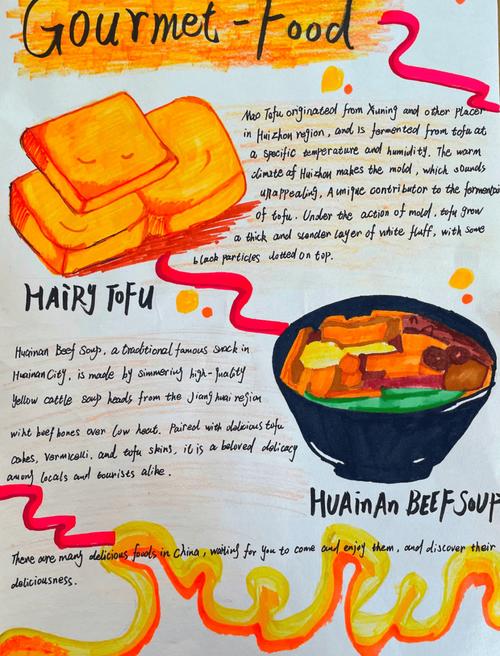 Gourmet-Food
Mao Tofu originated from Xiuning and other places
in Huizhou region, and is fermented from tofu at
a specific temperature and humidity. The warm
climate of Huizhou makes the mold, which sounds
unappealing, A unique contributor to the fermentation
of tofu. Under the action of mold, tofu grow
a thick and slender layer of white fluff, with some
black particles dotted on top.
HAIRY TOFU
Huainan Beef Soup, a traditional famous snack in
Huainan City, is made by simmering high-quality
yellow cattle soup heads from the Jianghuai region
wiht beef bones over low heat. Paired with delicious tofu
cakes, vermicelli, and tofu skins, it is a beloved delicacy
among locals and tourists alike.
HUAinAn BEEF SOUP
There are many delicious foods in China, waiting for you to come and enjoy them, and discover their
deliciousness.